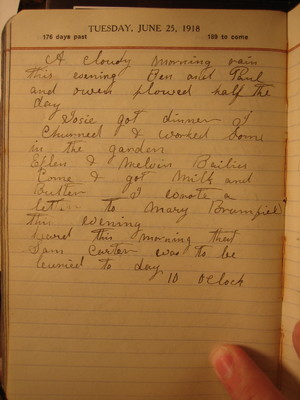 TUESDAY, JUNE 25, 1918
176 days past 189 to come
A Cloudy morning rain
this evening Ben and Paul
and owen plowed half the
day
Josie got dinner I
Churned & worked some
in the garden
Effen & Melvin Bailies
Come & got Milk and
Butter I wrote a
letter to Mary Brumfiel
this evening
heard this morning that
Sam Carter was to be
burried to day
10 OClock